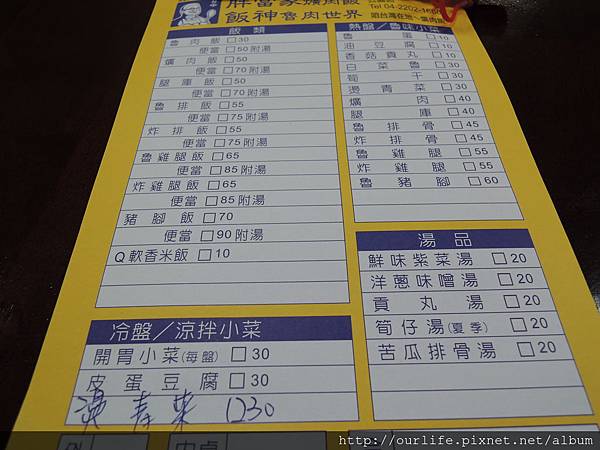 胖當家爌肉飯
飯神魯肉世界
飯類
魯肉飯□30
便當□50附湯
爌肉飯□50
便當□70附湯
腿庫飯□50
便當□70附湯
魯排飯□55
便當□75附湯
炸排飯□55
便當□75附湯
魯雞腿飯□65
便當□85附湯
炸雞腿飯□65
便當□85附湯
豬腳飯□70
便當□90附湯
Q軟香米飯□10
冷盤／涼拌小菜
開胃小菜(每盤)□30
皮蛋豆腐□30
燙青菜 □30
熱盤／魯味小菜
魯蛋□10
油豆腐□10
香菇貢丸□10
白菜魯□30
筍干□30
燙青菜□30
爌肉□40
腿庫□40
魯排骨□45
炸排骨□45
魯雞腿□55
炸雞腿□55
魯豬腳□60
湯品
鮮味紫菜湯□20
洋蔥味噌湯□20
貢丸湯□20
筍仔湯(夏季)□20
苦瓜排骨湯□20
http://ourlife.pixnet.net/album